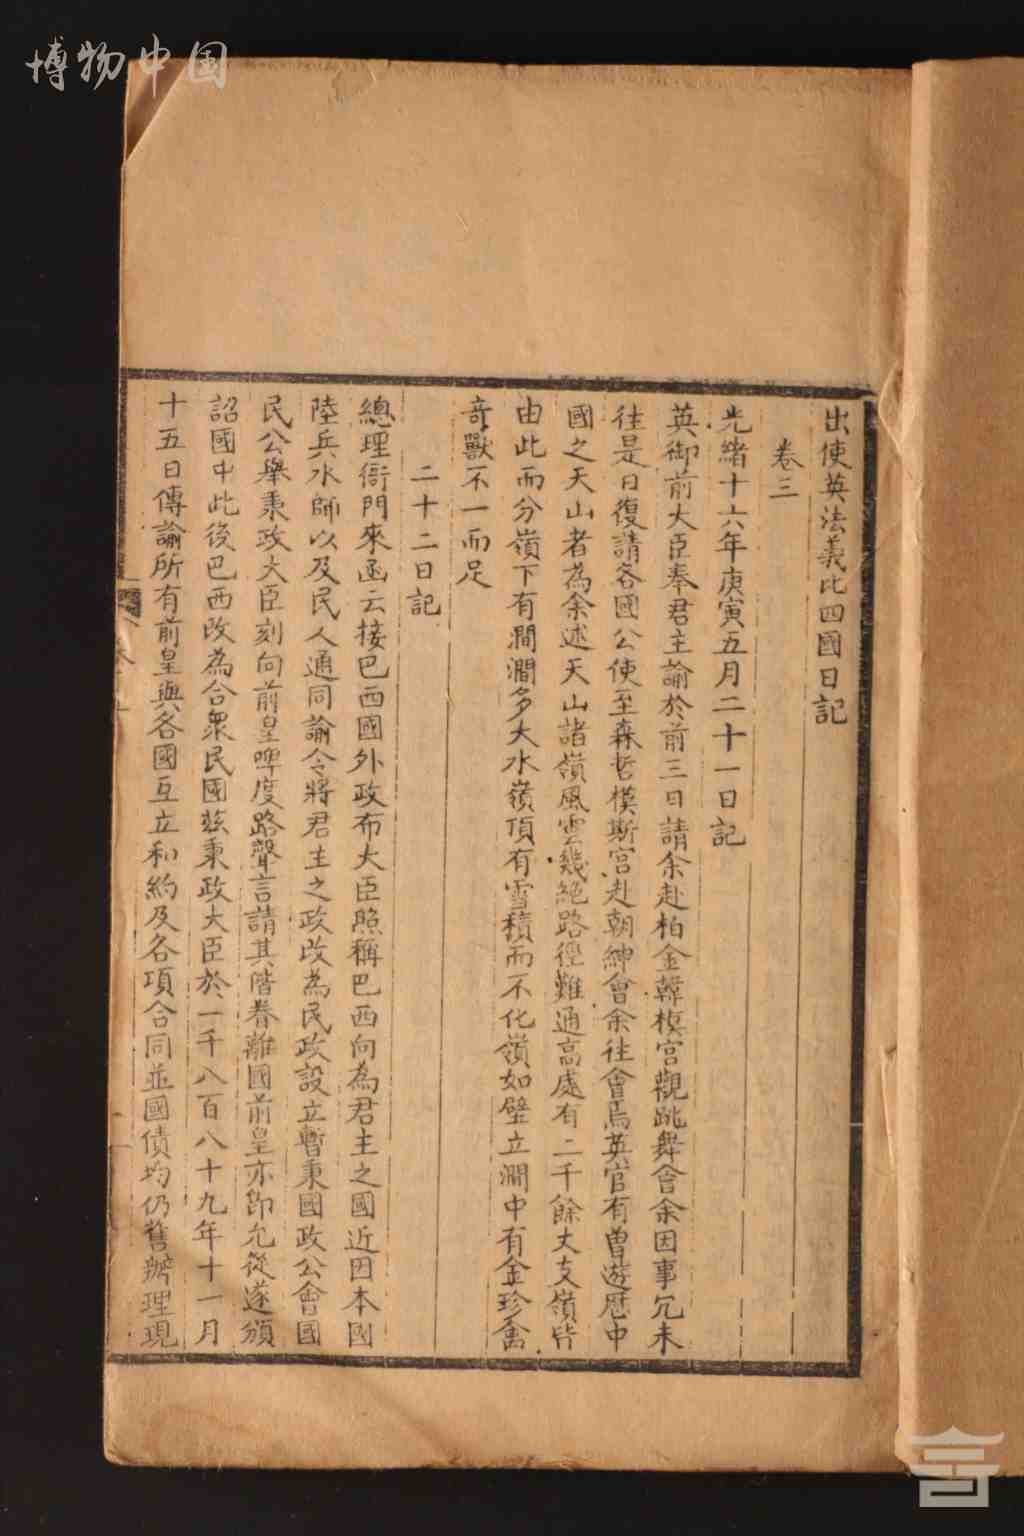 博物中国
出使英法義比四國日記
卷三
光緒十六年庚寅五月二十一日記
英御前大臣奉君主諭於前三日請余赴柏金韓模宮觀跳舞會余因事冗未
往是日復請各國公使至森哲模斯宮赴朝紳會余往會焉英官有曾遊歷中
國之天山者為余述天山諸嶺風雲幾絕路徑難通高處有二千餘丈支嶺皆
由此而分嶺下有澗澗多大水嶺頂有雪積而不化嶺如壁立澗中有金珍禽
奇獸不一而足
二十二日記
總理衙門來函云接巴西國外政布大臣照稱巴西向為君主之國近因本國
陸兵水師以及民人通同諭令將君主之政改為民政設立暫秉國政公會國
民公舉秉政大臣刻向前皇啤度路聲言請其偕眷離國前皇亦即允從遂頒
詔國中此後巴西改為合衆民國茲秉政大臣於一千八百八十九年十一月
十五日傳諭所有前皇與各國互立和約及各項合同並國債均仍舊辦理現